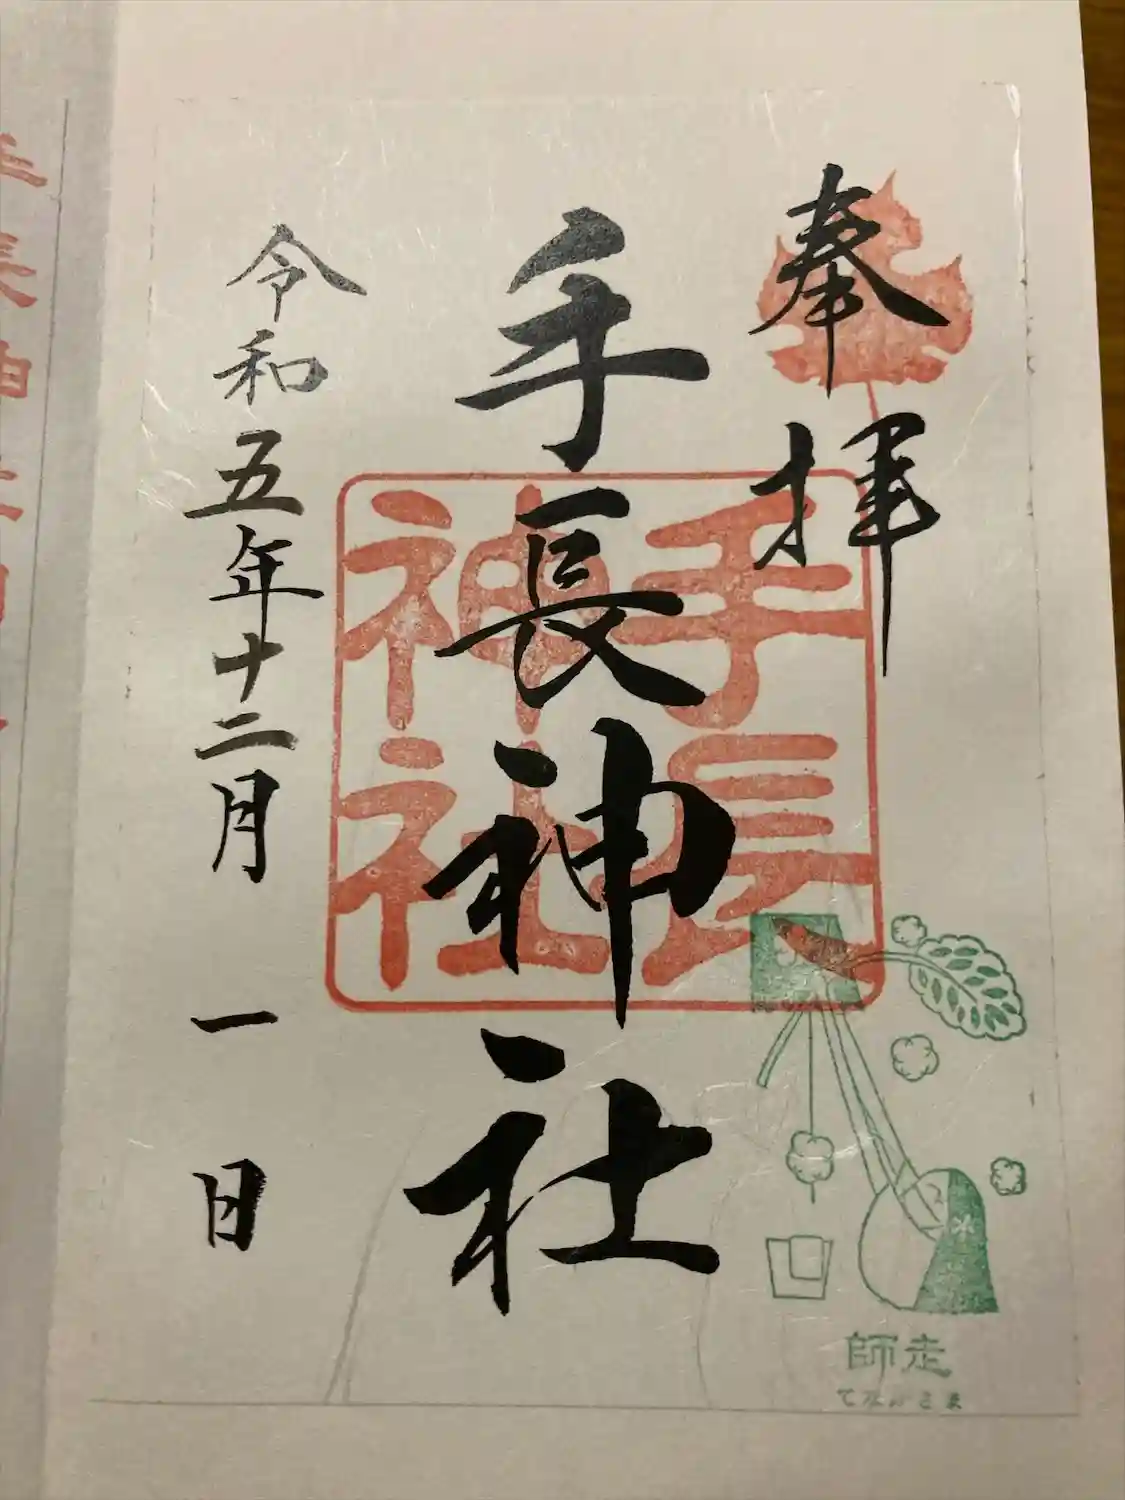 奉拝
手長神社
令和五年十二月一日
手長
神社
師走
てながさま